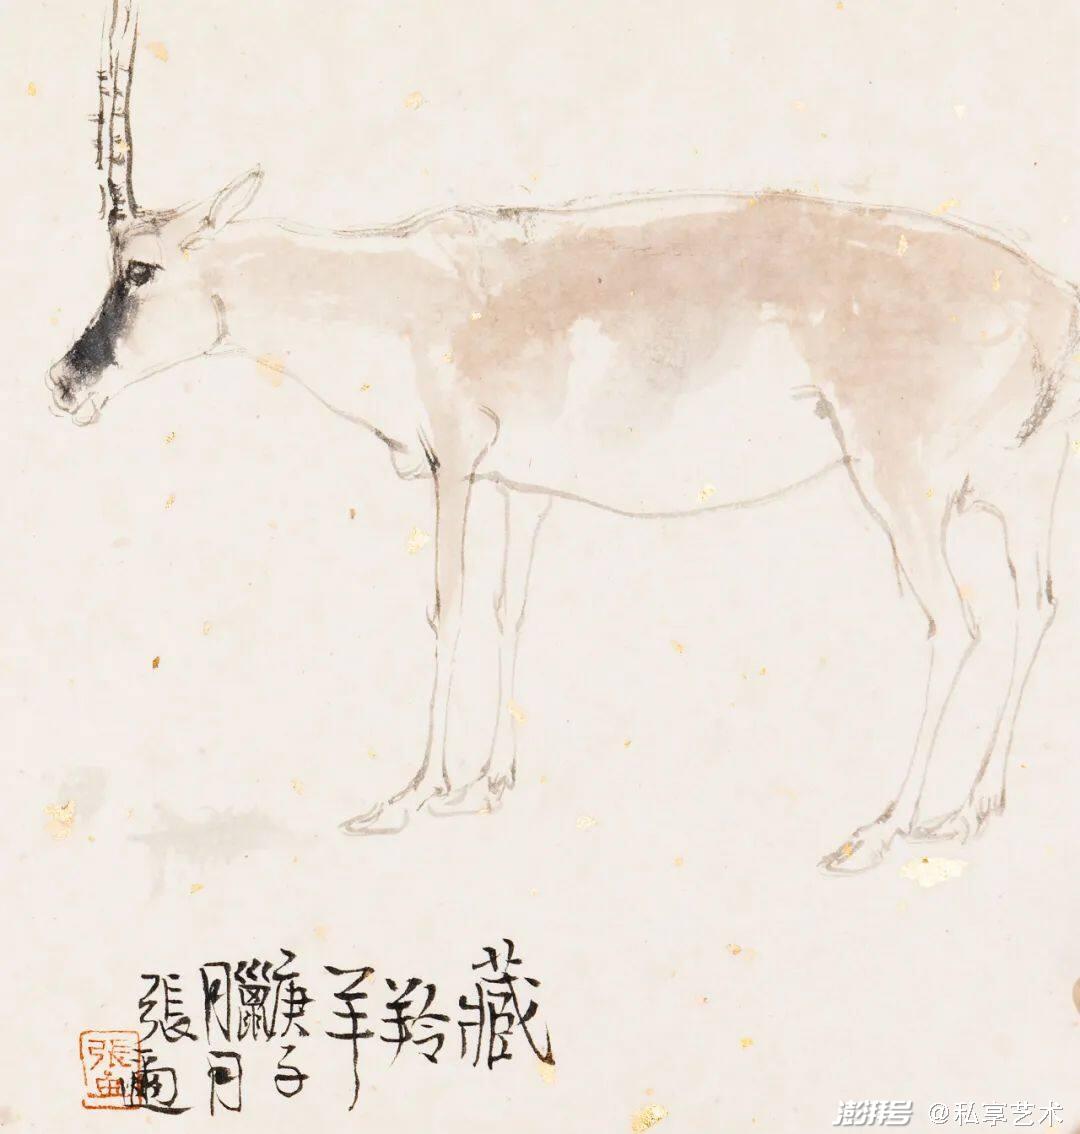 藏羚羊
庚子
臘月
張
張
澎湃号 @私享艺术